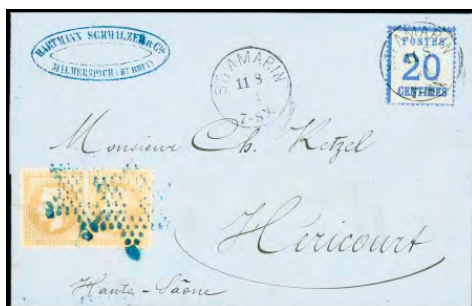 HARTMANN SCHMALZER & Cie
MALMERSPACH (Ht RHIN)
ST AMARIN
11 8
7-8N.
POSTES
20
CENTIMES
AMARIN
Monsieur Ch. Ketzel
Héricourt
Haute-Saône